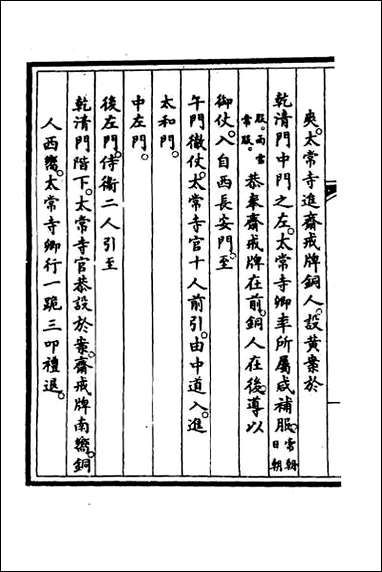 爽。太常寺進齋戒牌銅人。設黃案於
乾清門中門之左。太常寺卿率所屬咸補服。常朝日朝
服。雨雪常服。恭奉齋戒牌在前。銅人在後。導以
御仗。入自西長安門。至
午門徹仗。太常寺官十人前引。由中道入。進
太和門。
中左門。
後左門。侍衛二人引至
乾清門階下。太常寺官恭設於案。齋戒牌南嚮。銅
人西嚮。太常寺卿行一跪三叩禮。退。